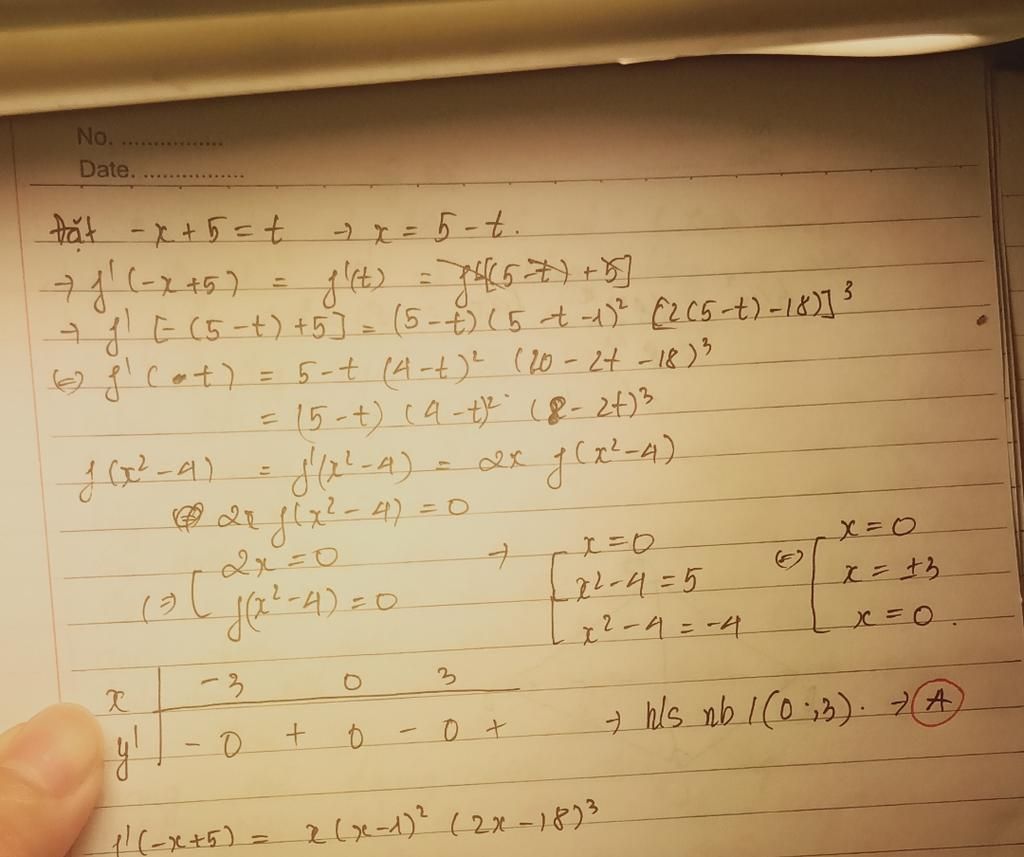 No. ................
Date. .................
Đặt -x + 5 = t → x = 5 - t.
→ f'(-x+5) = f'(t) =
→ f' [-(5-t)+5] = (5-t)(5-t-1)² [2(5-t)-18)]³
(=) f'(t) = 5-t (4-t)² (10-2t-18)³
= (5-t) (4-t)² (8-2t)³
f(x²-4) = f'(x²-4) = 2x f(x²-4)
2x f(x²-4) = 0
(=) [ 2x = 0 → [ x = 0 (=) [ x = 0
f(x²-4) = 0 x²-4 = 5 x = ±3
x²-4 = -4 x = 0.
x | -3 0 3
y' | - 0 + 0 - 0 + → h/s nb / (0;3). → A
f'(-x+5) = x(x-1)² (2x-18)³